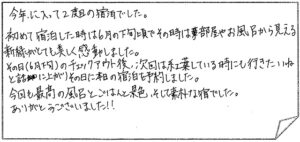 今年に入って2度目の宿泊でした。
初めて宿泊した時は6月の下旬頃でその時は東部屋やお風呂から見える
新緑がとても美しく感動しました。
その日(6月下旬)のチェックアウト後、次回は紅葉している時にも行きたいね
と話に上がりその日に秋の宿泊を予約しました。
今回も最高の風呂とごはんと景色、そして素朴な宿でした。
ありがとうございました!!